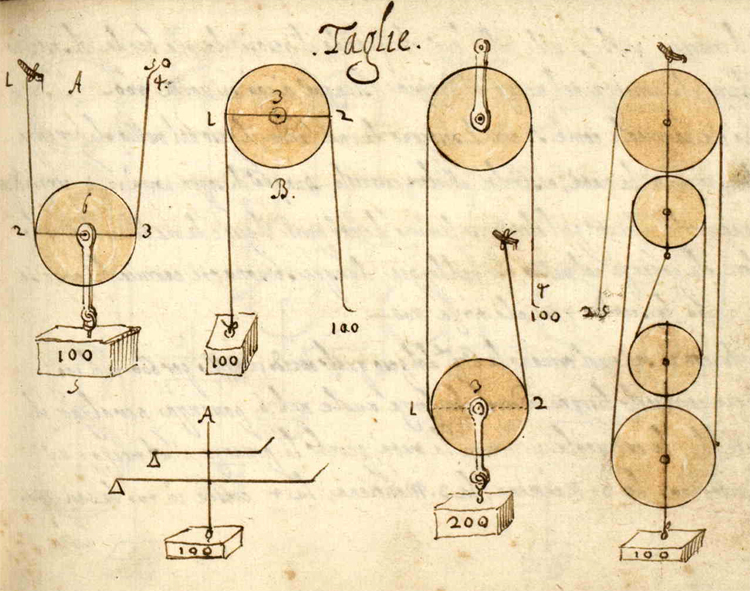 .Taglie.
1
A
50
4.
6
2
3
100
5
3
1
2
B.
100
100
4
100
3
1
2
200
25
100
A
Δ
Δ
100